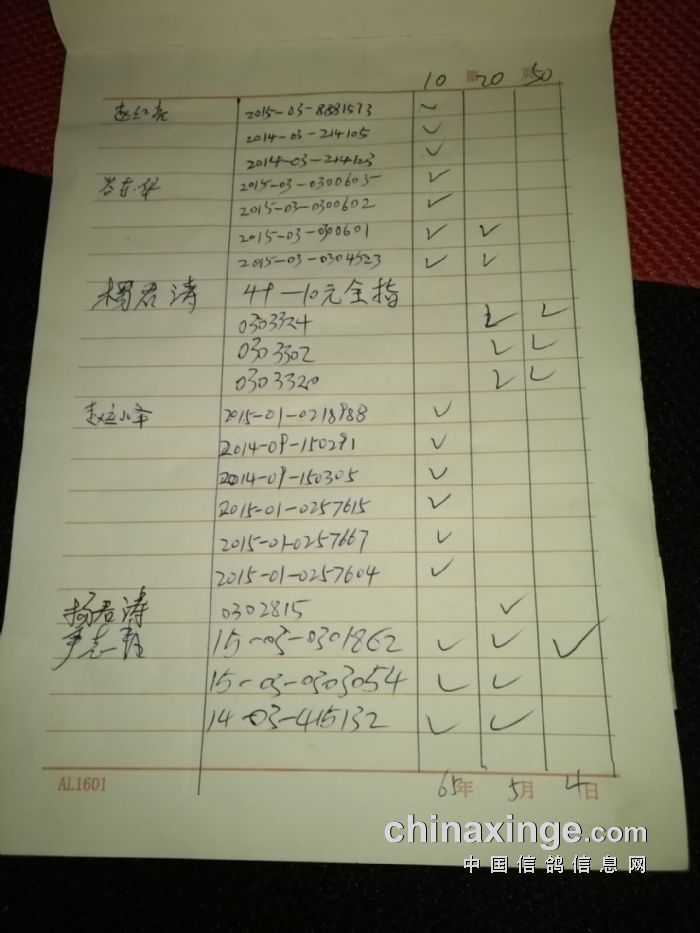 10 第20 页50
赵红亮 2015-03-8881573 ✓
2014-03-214105 ✓
2014-03-214123 ✓
2015-03-0300605 ✓
2015-03-0300602 ✓
2015-03-0300601 ✓ ✓
2015-03-0304523 ✓ ✓
杨君涛 49-10元全指
0303324 ✓ ✓
0303302 ✓ ✓
0303320 ✓ ✓
2015-01-0218988 ✓
2014-09-150291 ✓
2014-09-150305 ✓
2015-01-0257615 ✓
2015-01-0257667 ✓
2015-01-0257604 ✓
杨君涛 0302815 ✓
尹志 15-03-0301862 ✓ ✓ ✓
15-03-0303054 ✓ ✓
14-03-415132 ✓ ✓
AL1601 65年 5月 4日
chinaxinge.com
中国信鸽信息网